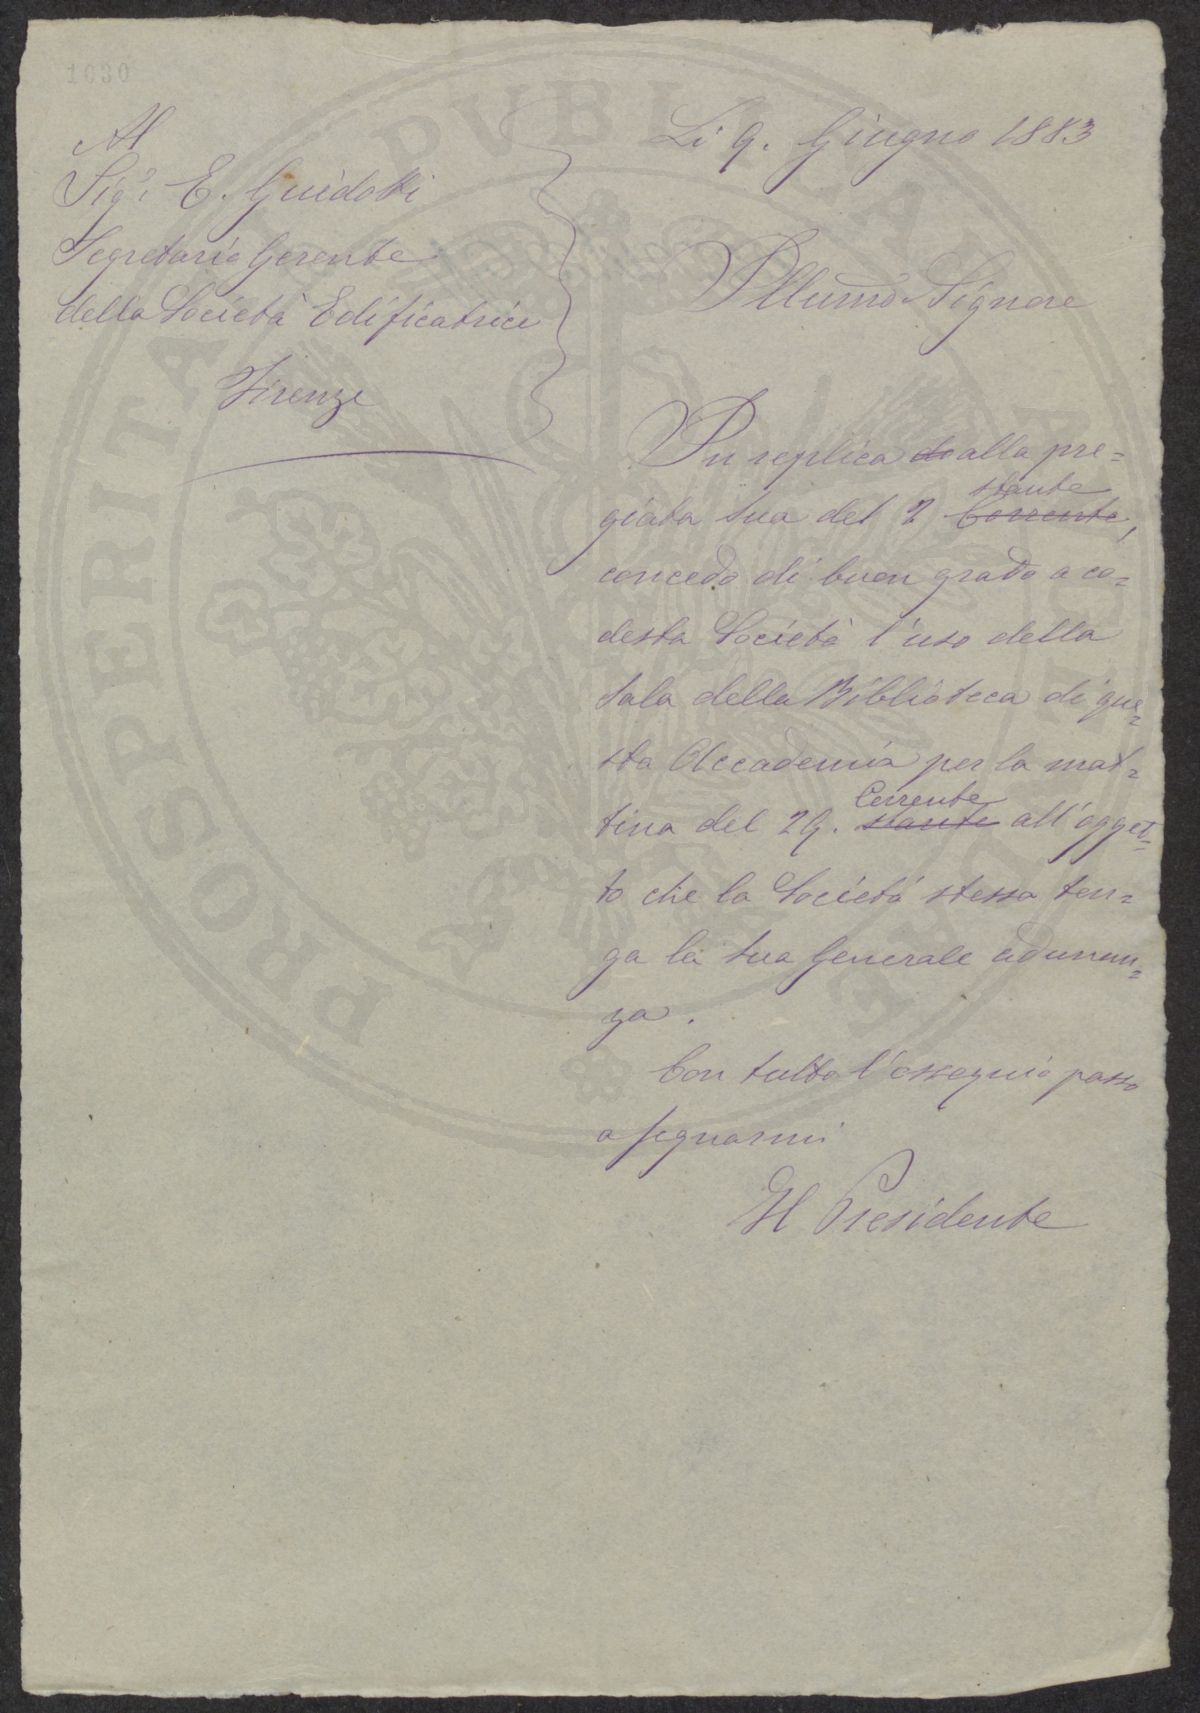 1030
Al
Sigr. E. Guidotti
Segretario Gerente
della Società Edificatrice
Firenze
Li 9. Giugno 1883
Illumo Signore
In replica do alla pre=
giata sua del 2 stante
Corrente,
concedo di buon grado a co=
desta Società l'uso della
sala della Biblioteca di que=
sta Accademia per la mat=
tina del 29. Corrente
stante all'ogget=
to che la Società stessa ten=
ga la sua Generale adunan=
za.
Con tutto l'ossequio passo
a segnarmi
Il Presidente
PROSPERITATI PVBLICAE AVGENDAE